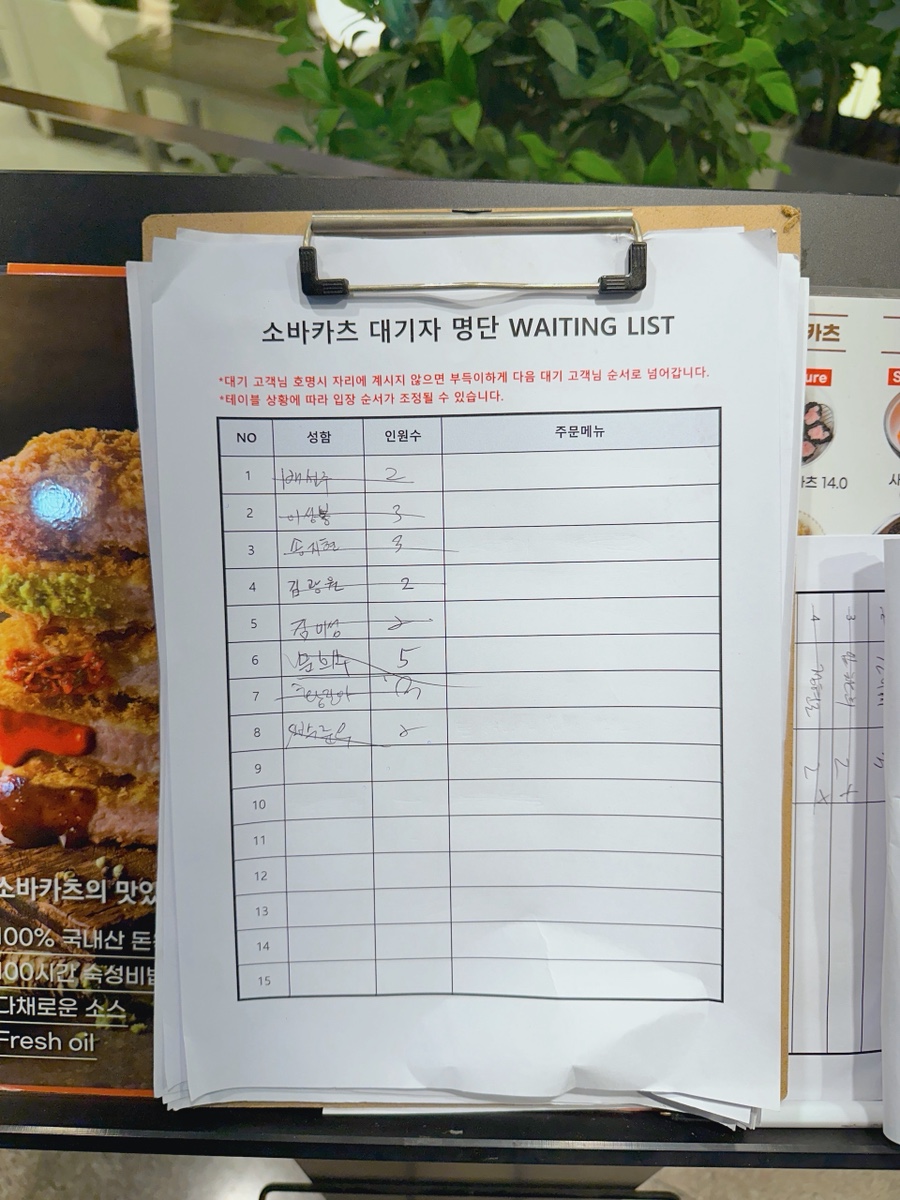 소바카츠 대기자 명단 WAITING LIST
*대기 고객님 호명시 자리에 계시지 않으면 부득이하게 다음 대기 고객님 순서로 넘어갑니다.
*테이블 상황에 따라 입장 순서가 조정될 수 있습니다.
NO 성함 인원수 주문메뉴
1 2
2 이상봉 3
3 송지현 3
4 김광원 2
5 김미성 2
6 5
7
8 2
9
10
11
12
13
14
15
소바카츠의 맛있
100% 국내산 돈
400시간 숙성비법
다채로운 소스
Fresh oil
카츠
ure
카츠 14.0
4 2 x
3 2